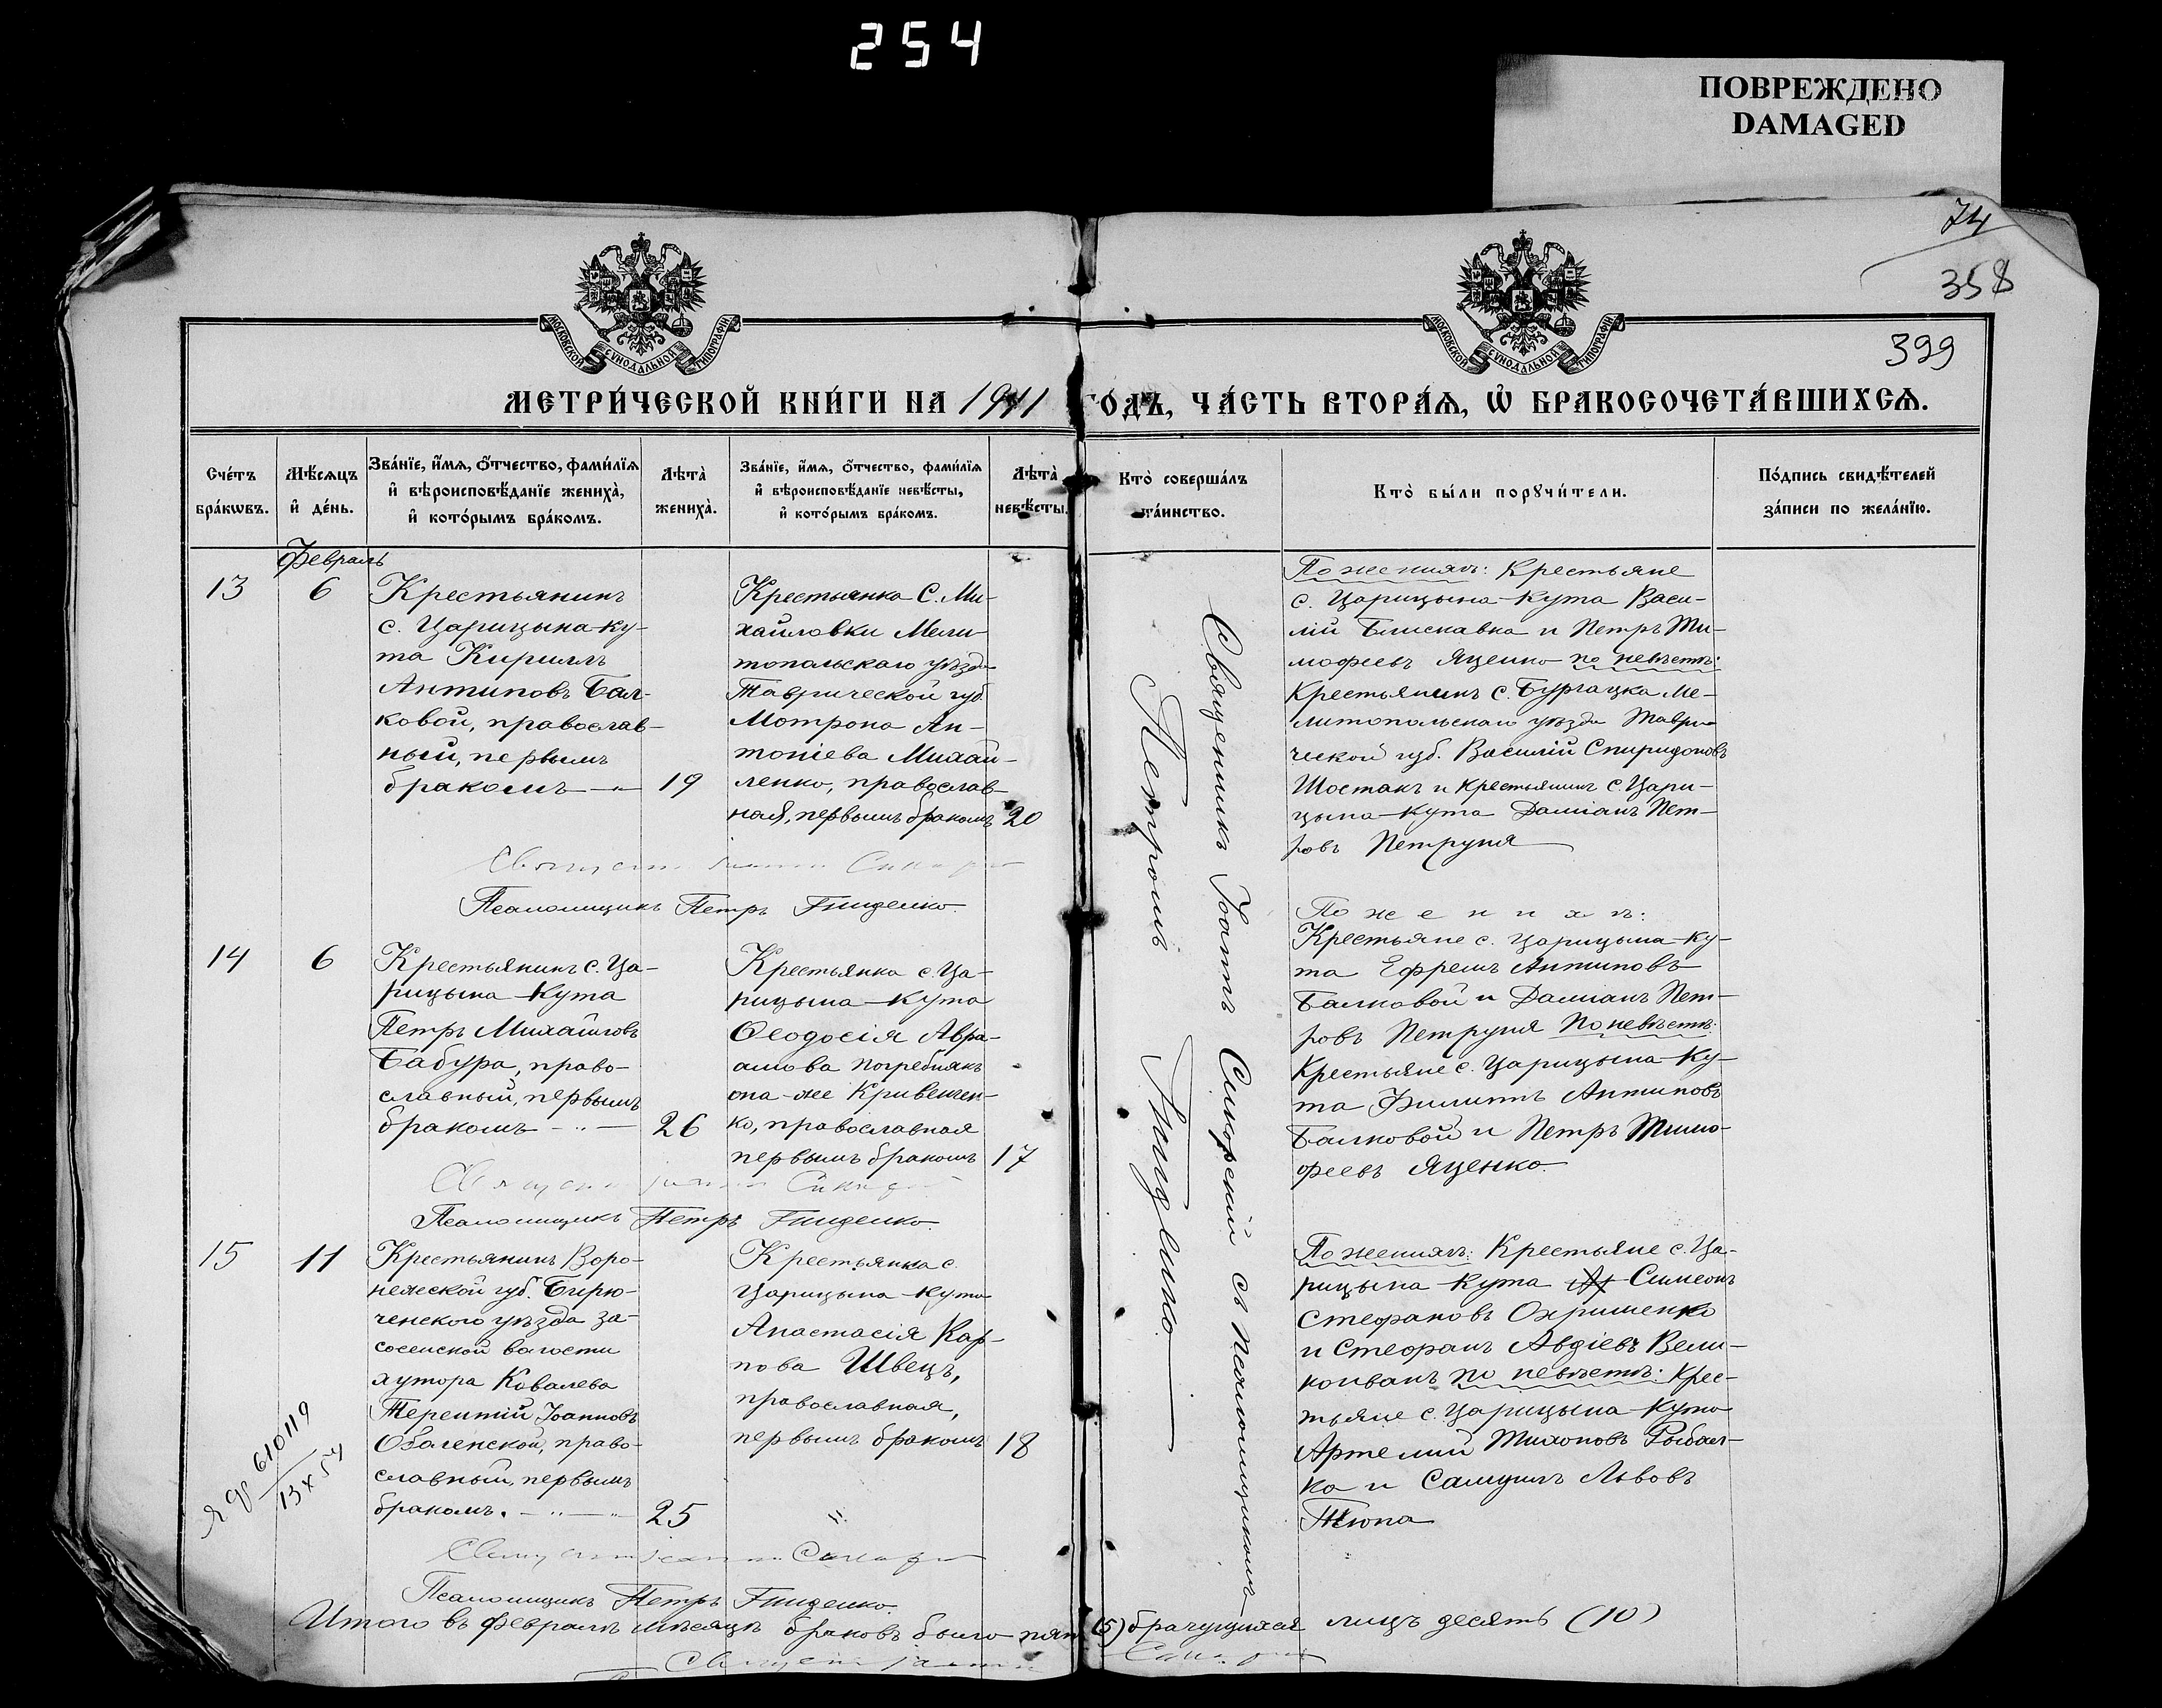 254
ПОВРЕЖДЕНО
DAMAGED
74
358
399
МОСКОВСКОЙ СѴНОДАЛЬНОЙ ТИПОГРАФІИ
МОСКОВСКОЙ СѴНОДАЛЬНОЙ ТИПОГРАФІИ
МЕТРИ́ЧЕСКОЙ КНИ́ГИ НА 1911 ГОДЪ, ЧА́СТЬ ВТОРА́Я, Ѡ БРАКОСОЧЕТА́ВШИХСЯ.
Сче́тъ бра́кѡвъ.
Мѣ́сяцъ и де́нь.
Зва́нїе, и́мя, о́тчество, фами́лїя и вѣроисповѣ́данїе жениха̀, и кото́рымъ бра́комъ.
Лѣта̀ жениха̀.
Зва́нїе, и́мя, о́тчество, фами́лїя и вѣроисповѣ́данїе невѣ́сты, и кото́рымъ бра́комъ.
Лѣта̀ невѣ́сты.
Кто̀ соверша́лъ та́инство.
Кто̀ бы́ли порꙋчи́тели.
По́дпись свидѣ́телей за́писи по жела́нїю.
Февраль
13
6
Крестьянинъ
с. Царицына-Ку-
та Кириллъ
Антиповъ Бал-
ковой, православ-
ный, первымъ
бракомъ
19
Крестьянка с. Ми-
хайловки Мели-
топольскаго уѣзда
Таврической губ.
Мотрона Ан-
тоніева Михай-
ленко, православ-
ная, первымъ бракомъ
20
По женихѣ: Крестьяне
с. Царицына-Кута Васи-
лій Блискавка и Петръ Ти-
мофеевъ Яценко по невѣстѣ:
Крестьянинъ с. Бургацка Ме-
литопольскаго уѣзда Таври-
ческой губ. Василій Спиридоновъ
Шостакъ и крестьянинъ с. Цари-
цына-Кута Даміанъ Пет-
ровъ Петруня
Псаломщикъ Петръ Гниденко.
14
6
Крестьянинъ с. Ца-
рицына-Кута
Петръ Михайловъ
Бабура, право-
славный, первымъ
бракомъ
26
Крестьянка с. Ца-
рицына-Кута
Ѳеодосія Авра-
амова Погребнякъ
она-же Кривенчен-
ко, православная
первымъ бракомъ
17
По женихѣ:
Крестьяне с. Царицына-Ку-
та Ефремъ Антиповъ
Балковой и Даміанъ Пет-
ровъ Петруня по невѣстѣ:
Крестьяне с. Царицына-Ку-
та Филиппъ Антиповъ
Балковой и Петръ Тимо-
феевъ Яценко.
Псаломщикъ Петръ Гниденко.
15
11
Крестьянинъ Воро-
нежской губ. Бирю-
ченского уѣзда За-
сосенской волости
хутора Ковалева
Терентій Іоанновъ
Оболенской, право-
славный, первымъ
бракомъ.
25
Крестьянка с.
Царицына-Кута
Анастасія Кар-
пова Швецъ,
православная,
первымъ бракомъ
18
По женихѣ: Крестьяне с. Ца-
рицына-Кута Симеонъ
Стефановъ Охрименко
и Стефанъ Авдіевъ Вели-
коиванъ по невѣстѣ: Крес-
тьяне с. Царицына-Кута
Артемій Тихоновъ Рыбал-
ка и Самуилъ Львовъ
Тюпа
Священникъ Іоаннъ с Псаломщикомъ
Петромъ Гниденко
610119
13 X 54
Псаломщикъ Петръ Гниденко.
Итого въ февралѣ мѣсяцѣ браковъ было пять (5) брачущихся лицъ десять (10)